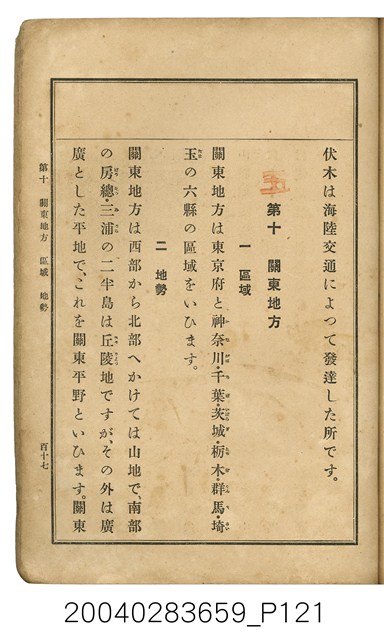 伏木は海陸交通によつて發達した所です。
第十　關東地方
一　區域
關東地方は東京府と神奈川・千葉・茨城・栃木・群馬・埼
玉の六縣の區域をいひます。
二　地勢
關東地方は西部から北部へかけては山地で、南部
の房總・三浦の二半島は丘陵地ですが、その外は廣
廣とした平地で、これを關東平野といひます。關東
第十　關東地方　區域　地勢
百十七
20040283659_P121